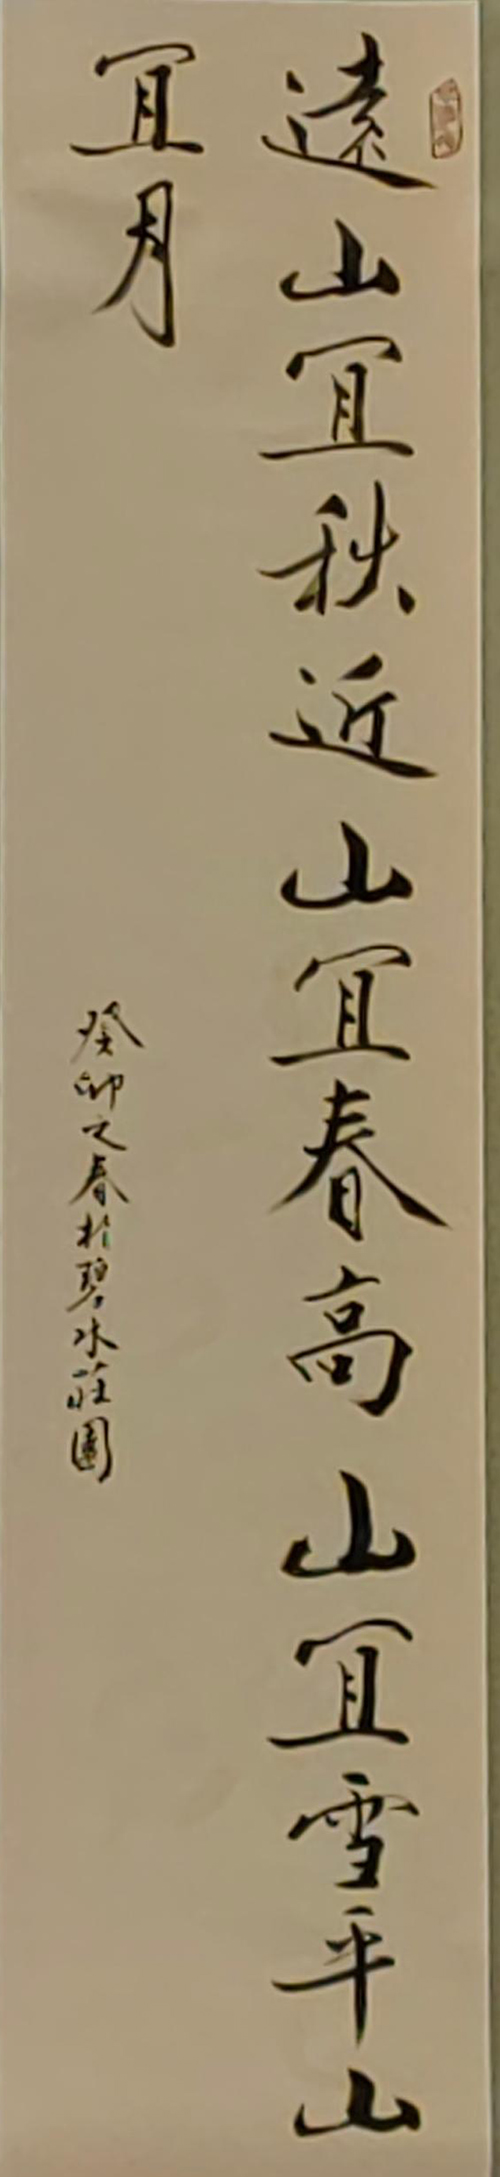 遠山宜秋近山宜春高山宜雪平山
宜月
癸卯之春於碧水莊園